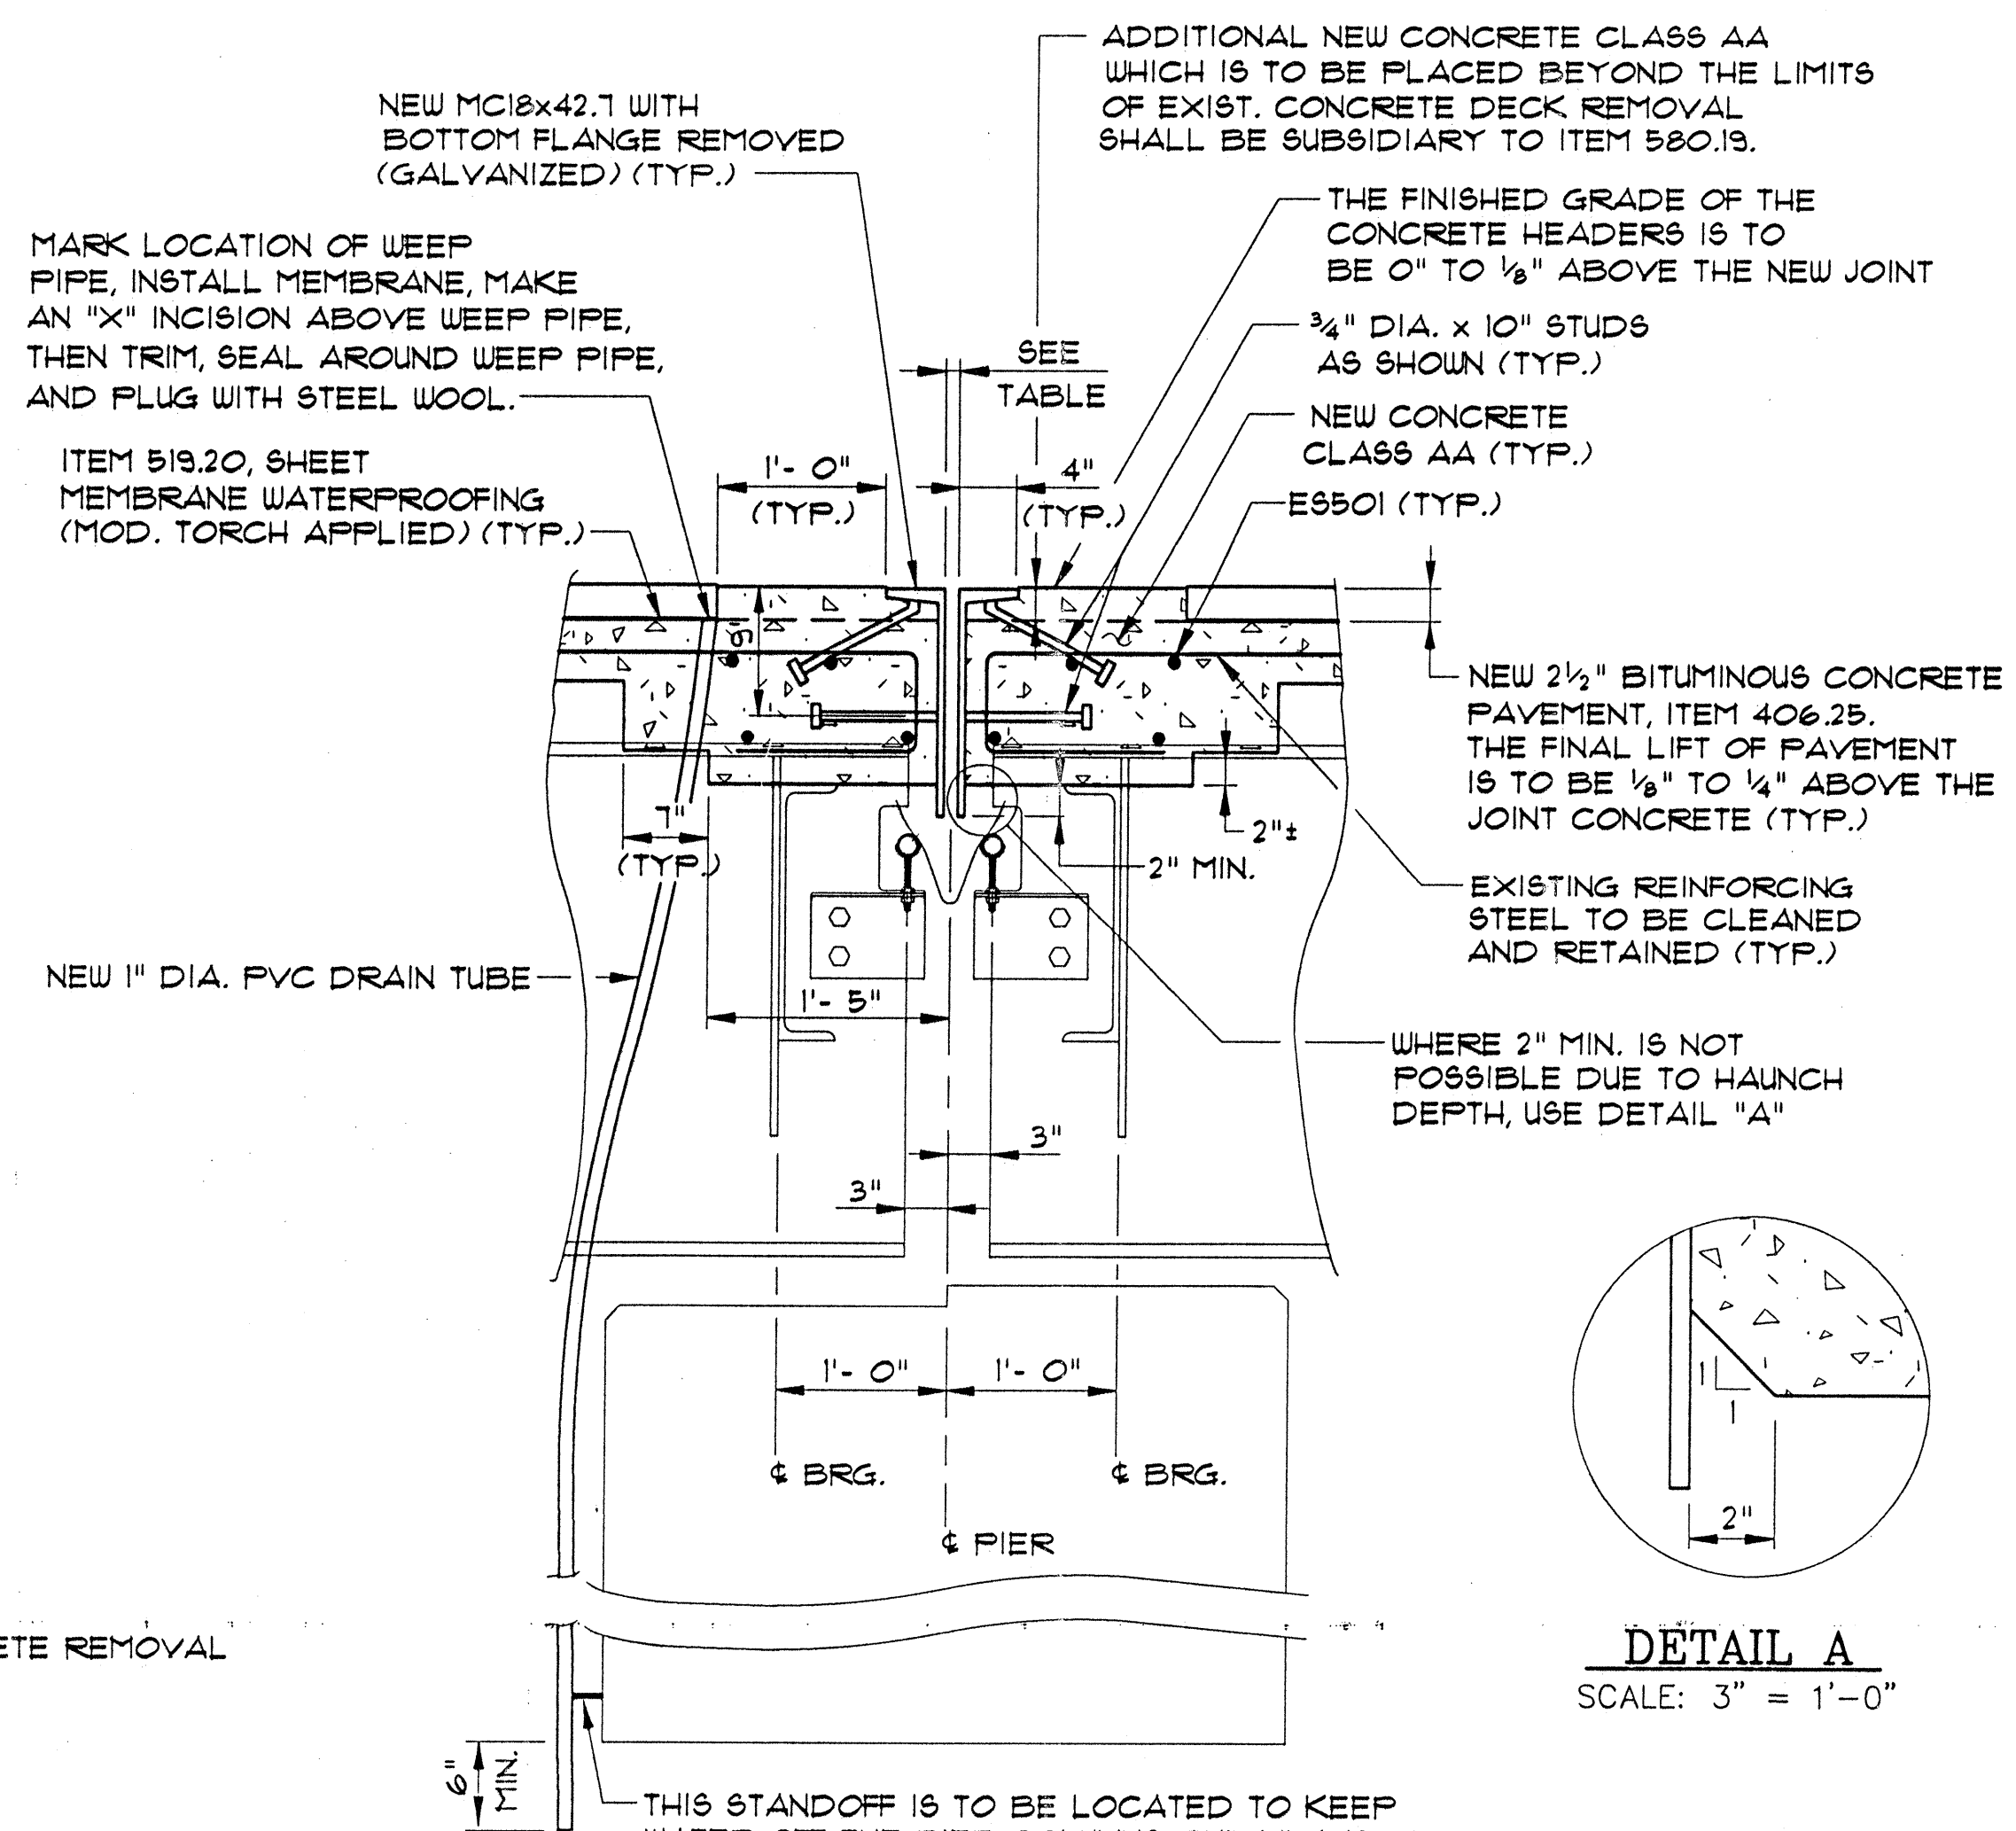 ADDITIONAL NEW CONCRETE CLASS AA
WHICH IS TO BE PLACED BEYOND THE LIMITS
OF EXIST. CONCRETE DECK REMOVAL
SHALL BE SUBSIDIARY TO ITEM 580.19.
NEW MC18x42.7 WITH
BOTTOM FLANGE REMOVED
(GALVANIZED) (TYP.)
THE FINISHED GRADE OF THE
CONCRETE HEADERS IS TO
BE 0" TO 1/8" ABOVE THE NEW JOINT
MARK LOCATION OF WEEP
PIPE, INSTALL MEMBRANE, MAKE
AN "X" INCISION ABOVE WEEP PIPE,
THEN TRIM, SEAL AROUND WEEP PIPE,
AND PLUG WITH STEEL WOOL.
3/4" DIA. x 10" STUDS
AS SHOWN (TYP.)
SEE
TABLE
NEW CONCRETE
CLASS AA (TYP.)
ITEM 519.20, SHEET
MEMBRANE WATERPROOFING
(MOD. TORCH APPLIED) (TYP.)
1'- 0"
(TYP.)
4"
(TYP.)
ES501 (TYP.)
9"
NEW 2 1/2" BITUMINOUS CONCRETE
PAVEMENT, ITEM 406.25.
THE FINAL LIFT OF PAVEMENT
IS TO BE 1/8" TO 1/4" ABOVE THE
JOINT CONCRETE (TYP.)
7"
(TYP.)
2"±
2" MIN.
EXISTING REINFORCING
STEEL TO BE CLEANED
AND RETAINED (TYP.)
NEW 1" DIA. PVC DRAIN TUBE
1'- 5"
WHERE 2" MIN. IS NOT
POSSIBLE DUE TO HAUNCH
DEPTH, USE DETAIL "A"
3"
3"
1'- 0"
1'- 0"
℄ BRG.
℄ BRG.
℄ PIER
1
1
2"
DETAIL A
SCALE: 3" = 1'-0"
REMOVAL
6"
MIN.
THIS STANDOFF IS TO BE LOCATED TO KEEP